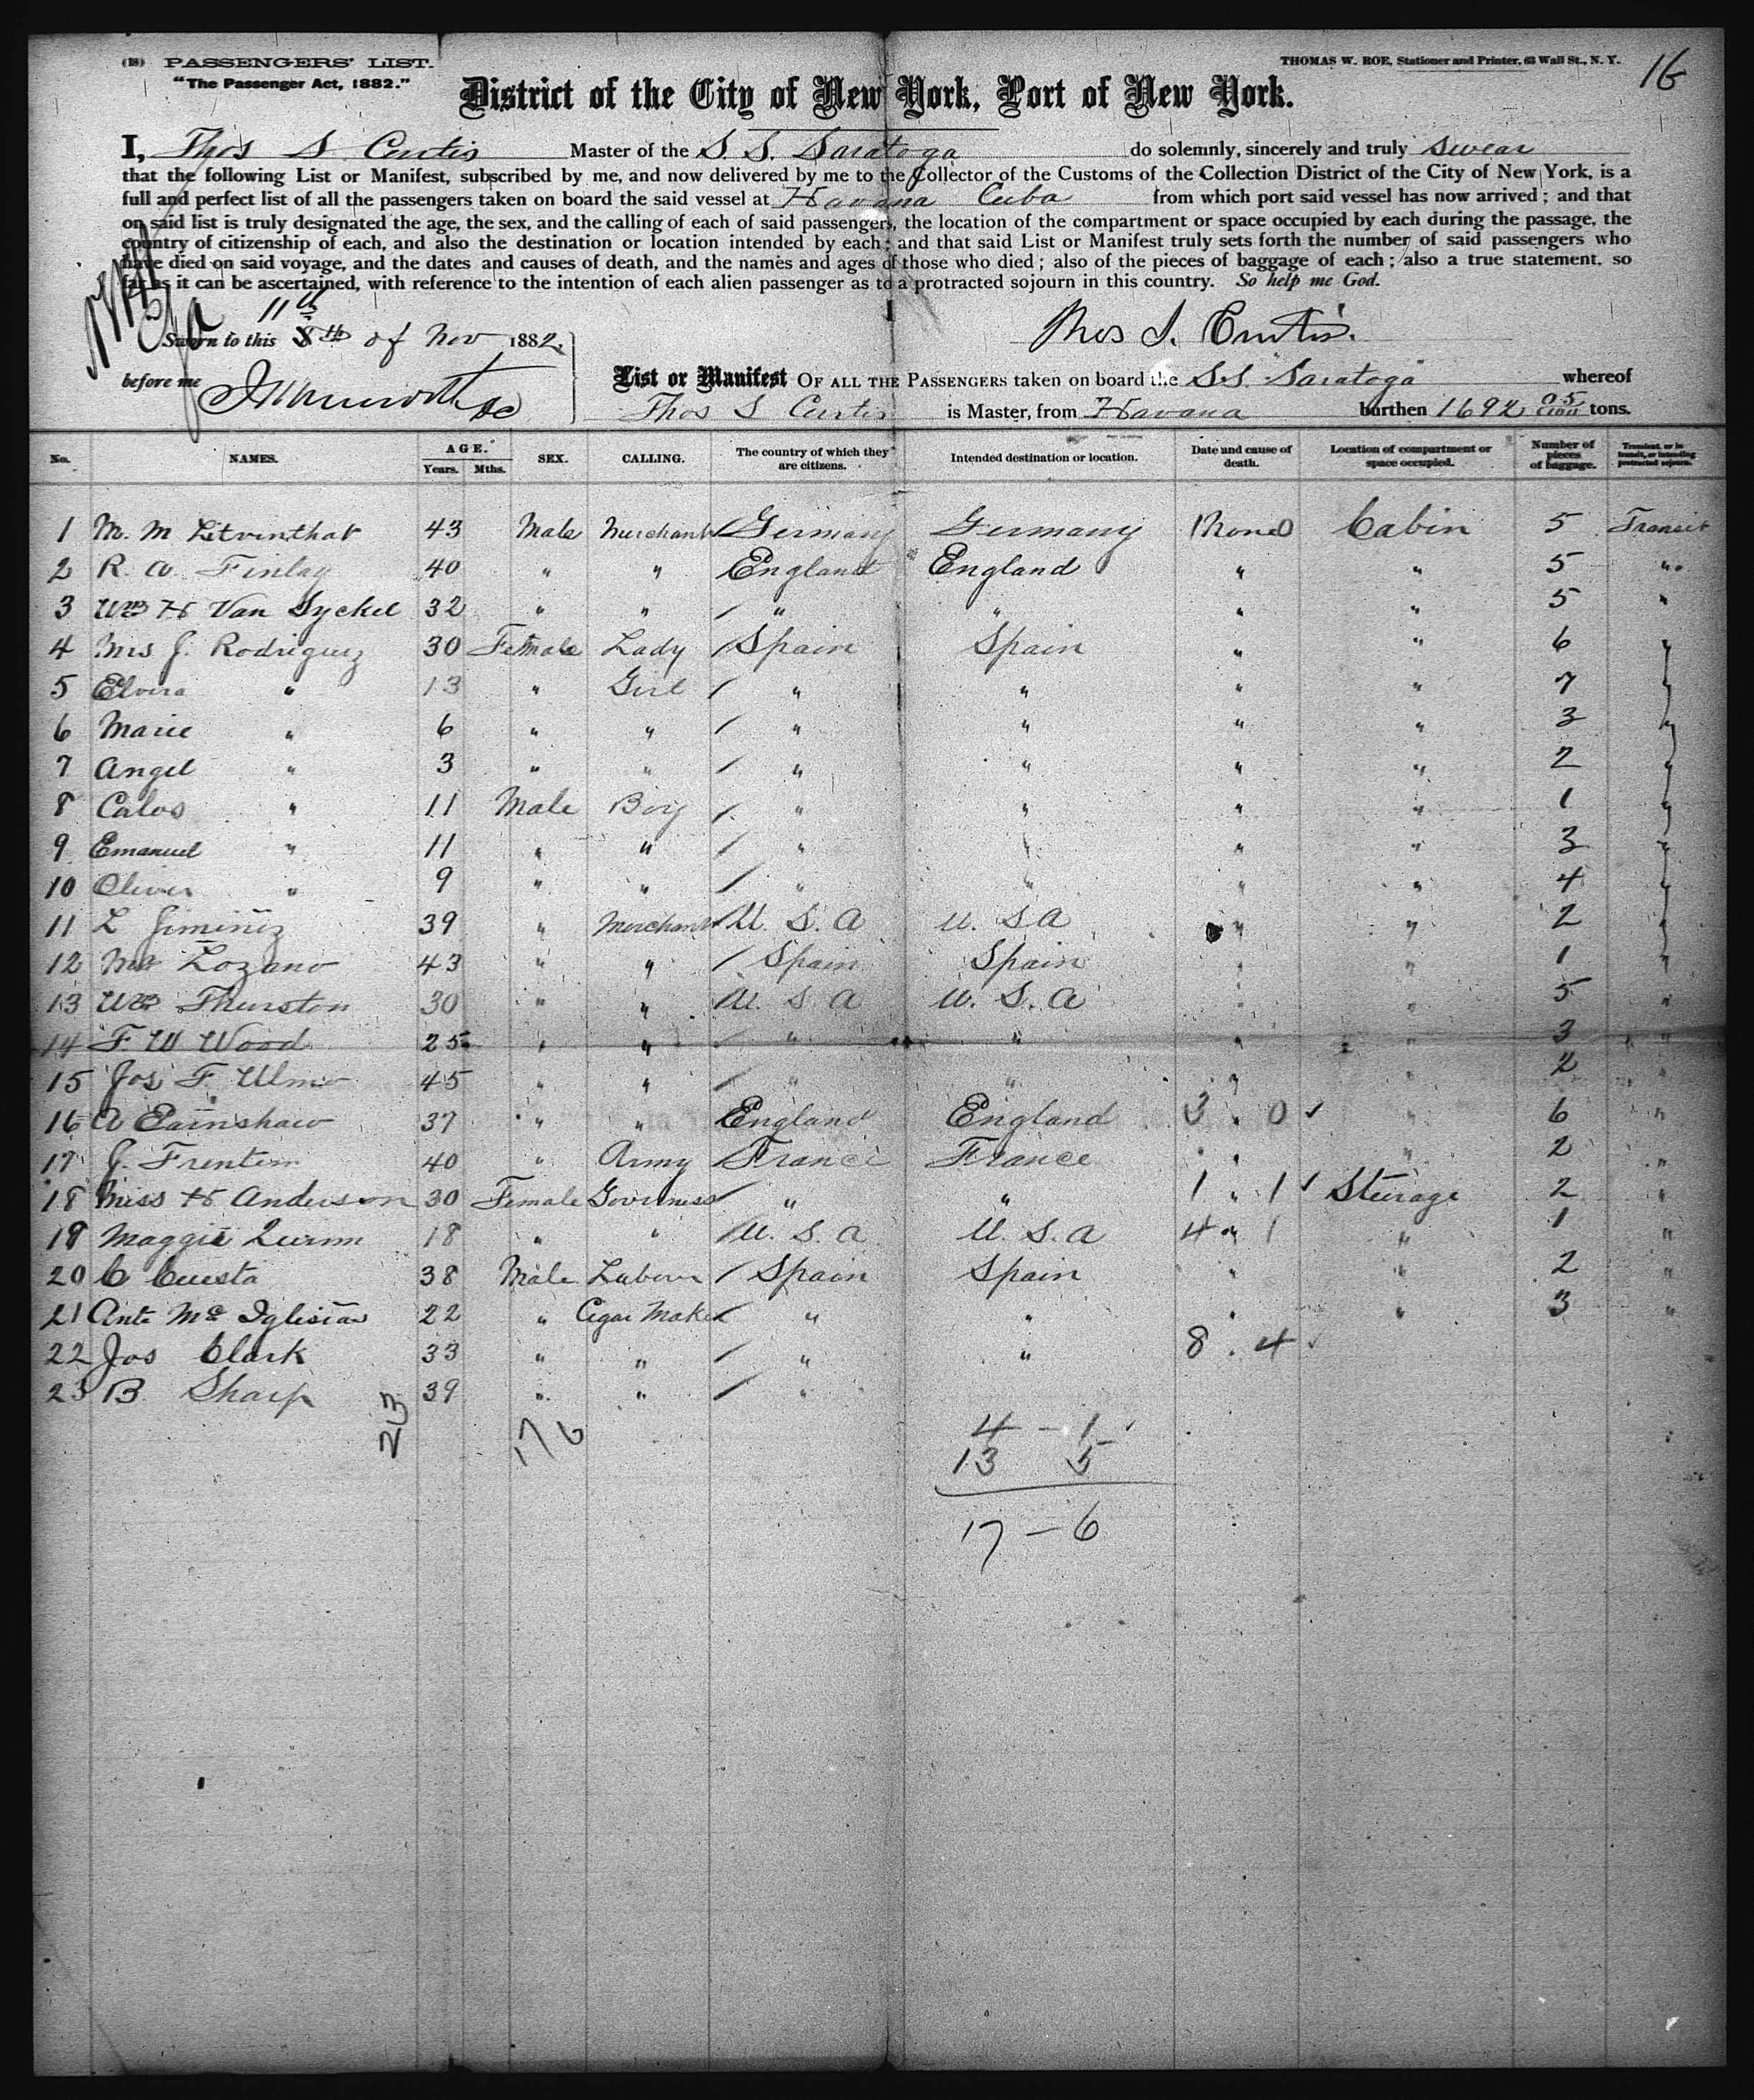 (18) PASSENGERS' LIST. THOMAS W. ROE, Stationer and Printer, 63 Wall St., N. Y. 16
"The Passenger Act, 1882."
District of the City of New York, Port of New York.
I, Thos S Curtis Master of the S. S. Saratoga do solemnly, sincerely and truly swear
that the following List or Manifest, subscribed by me, and now delivered by me to the Collector of the Customs of the Collection District of the City of New York, is a
full and perfect list of all the passengers taken on board the said vessel at Havana Cuba from which port said vessel has now arrived; and that
on said list is truly designated the age, the sex, and the calling of each of said passengers, the location of the compartment or space occupied by each during the passage, the
country of citizenship of each, and also the destination or location intended by each; and that said List or Manifest truly sets forth the number of said passengers who
have died on said voyage, and the dates and causes of death, and the names and ages of those who died; also of the pieces of baggage of each; also a true statement, so
far as it can be ascertained, with reference to the intention of each alien passenger as to a protracted sojourn in this country. So help me God.
11th
Sworn to this 8th of Nov 1882. Thos S. Curtis.
before me
List or Manifest OF ALL THE PASSENGERS taken on board the S.S. Saratoga whereof
Thos S Curtis is Master, from Havana burthen 1692 05/100 tons.
No. NAMES. AGE. Years. Mths. SEX. CALLING. The country of which they are citizens. Intended destination or location. Date and cause of death. Location of compartment or space occupied. Number of pieces of baggage. Transient, or in transit, or intending protracted sojourn.
1 M. M 43 Male Merchant Germany Germany None Cabin 5 Transit
2 R. W. Finlay 40 " " England England " " 5 "
3 Wm H Van Syckel 32 " " " " " " 5 "
4 Mrs J. Rodriguez 30 Female Lady Spain Spain " " 6 "
5 Elvira " 13 " Girl " " " " 7 "
6 Marie " 6 " " " " " " 3 "
7 Angel " 3 " " " " " " 2 "
8 Calos " 11 Male Boy " " " " 1 "
9 Emanuel " 11 " " " " " " 3 "
10 Oliver " 9 " " " " " " 4 "
11 L Jiminez 39 " Merchant U. S. A U. S A " " 2 "
12 Lozano 43 " " Spain Spain " " 1 "
13 Wm Thurston 30 " " U. S. A U. S. A " " 5 "
14 F. W Wood 25 " " " " " " 3 "
15 Jos F. Ulmo 45 " " " " " " 2 "
16 A Earnshaw 37 " " England England 3 " 0 " 6 "
17 J. 40 " Army France France " " 2 "
18 Miss H Anderson 30 Female Governess " " 1 " 1 Steerage 2 "
19 Maggie Quinn 18 " " U. S. A U. S. A 4 " 1 " 1 "
20 C Cuesta 38 Male Laborer Spain Spain " " 2 "
21 Anto Ma Iglesias 22 " Cigar Maker " " " " 3 "
22 Jos Clark 33 " " " " 8 . 4
23 B. Sharp 39 " " "
23 17 6
4 - 1
13 5
17 - 6